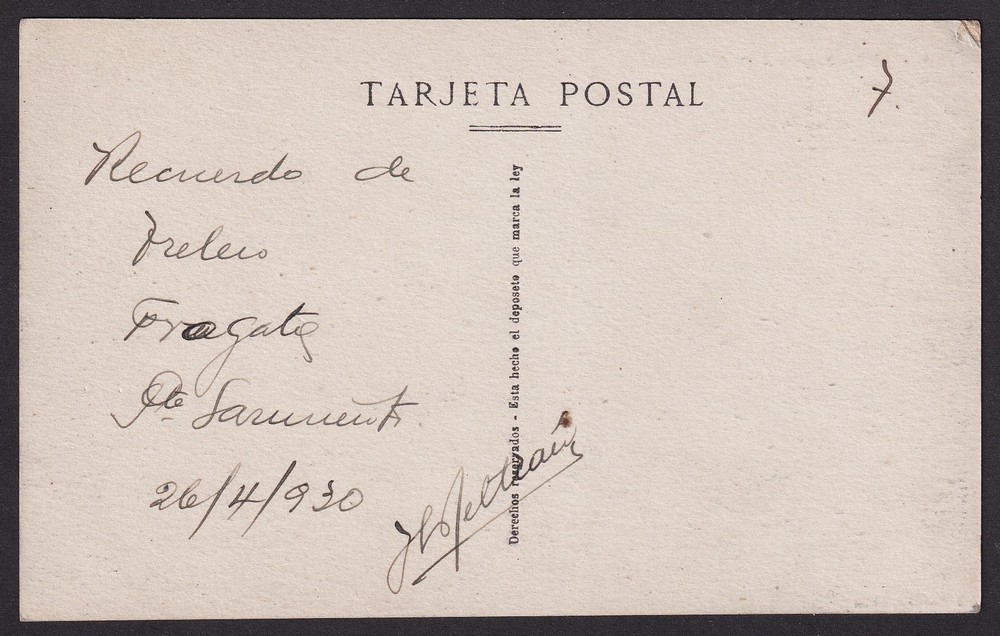 TARJETA POSTAL
7.
Recuerdo de
Trelew
Fragata
Pte Sarmiento.
26/4/930
Beltrán
Derechos reservados - Esta hecho el deposeto que marca la ley